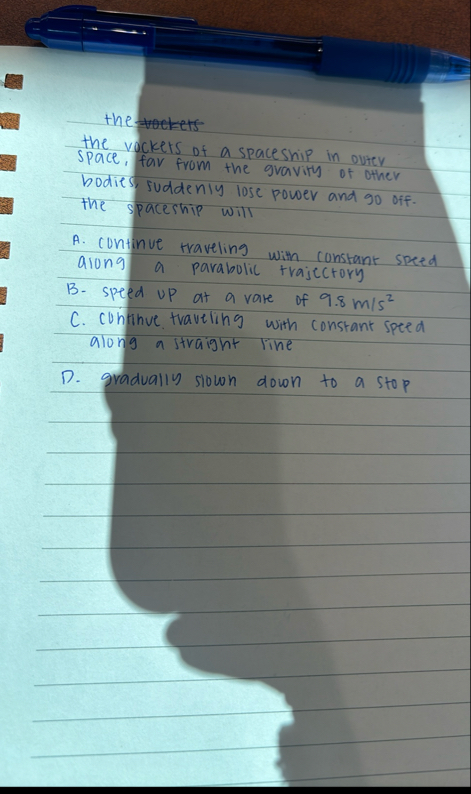 the vockets
the vockets of a spaceship in outer
space, far from the gravity of other
bodies, suddenly lose power and go off.
the spaceship will
A. continue traveling with constant speed
along a parabolic trajectory
B- speed up at a rate of 9.8 m/s²
C. continue traveling with constant speed
along a straight line
D. gradually slown down to a stop